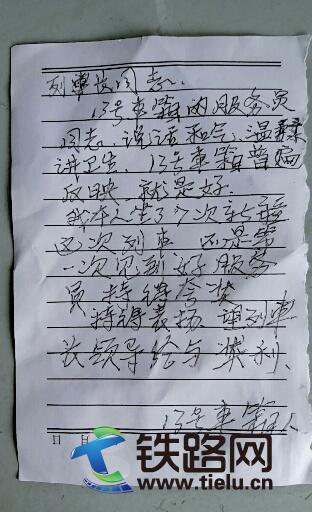 列车长同志、
13号车箱的服务员
同志、说话和气、温柔
讲卫生、13号车箱普遍
反映、就是好.
我本人坐了7次新疆
这次列车 还是第
一次见到好服务
员 特得夸奖
特得表扬、望列车
长领导给与 奖利、
13号车箱人
日 月
铁路网
www.tielu.cn